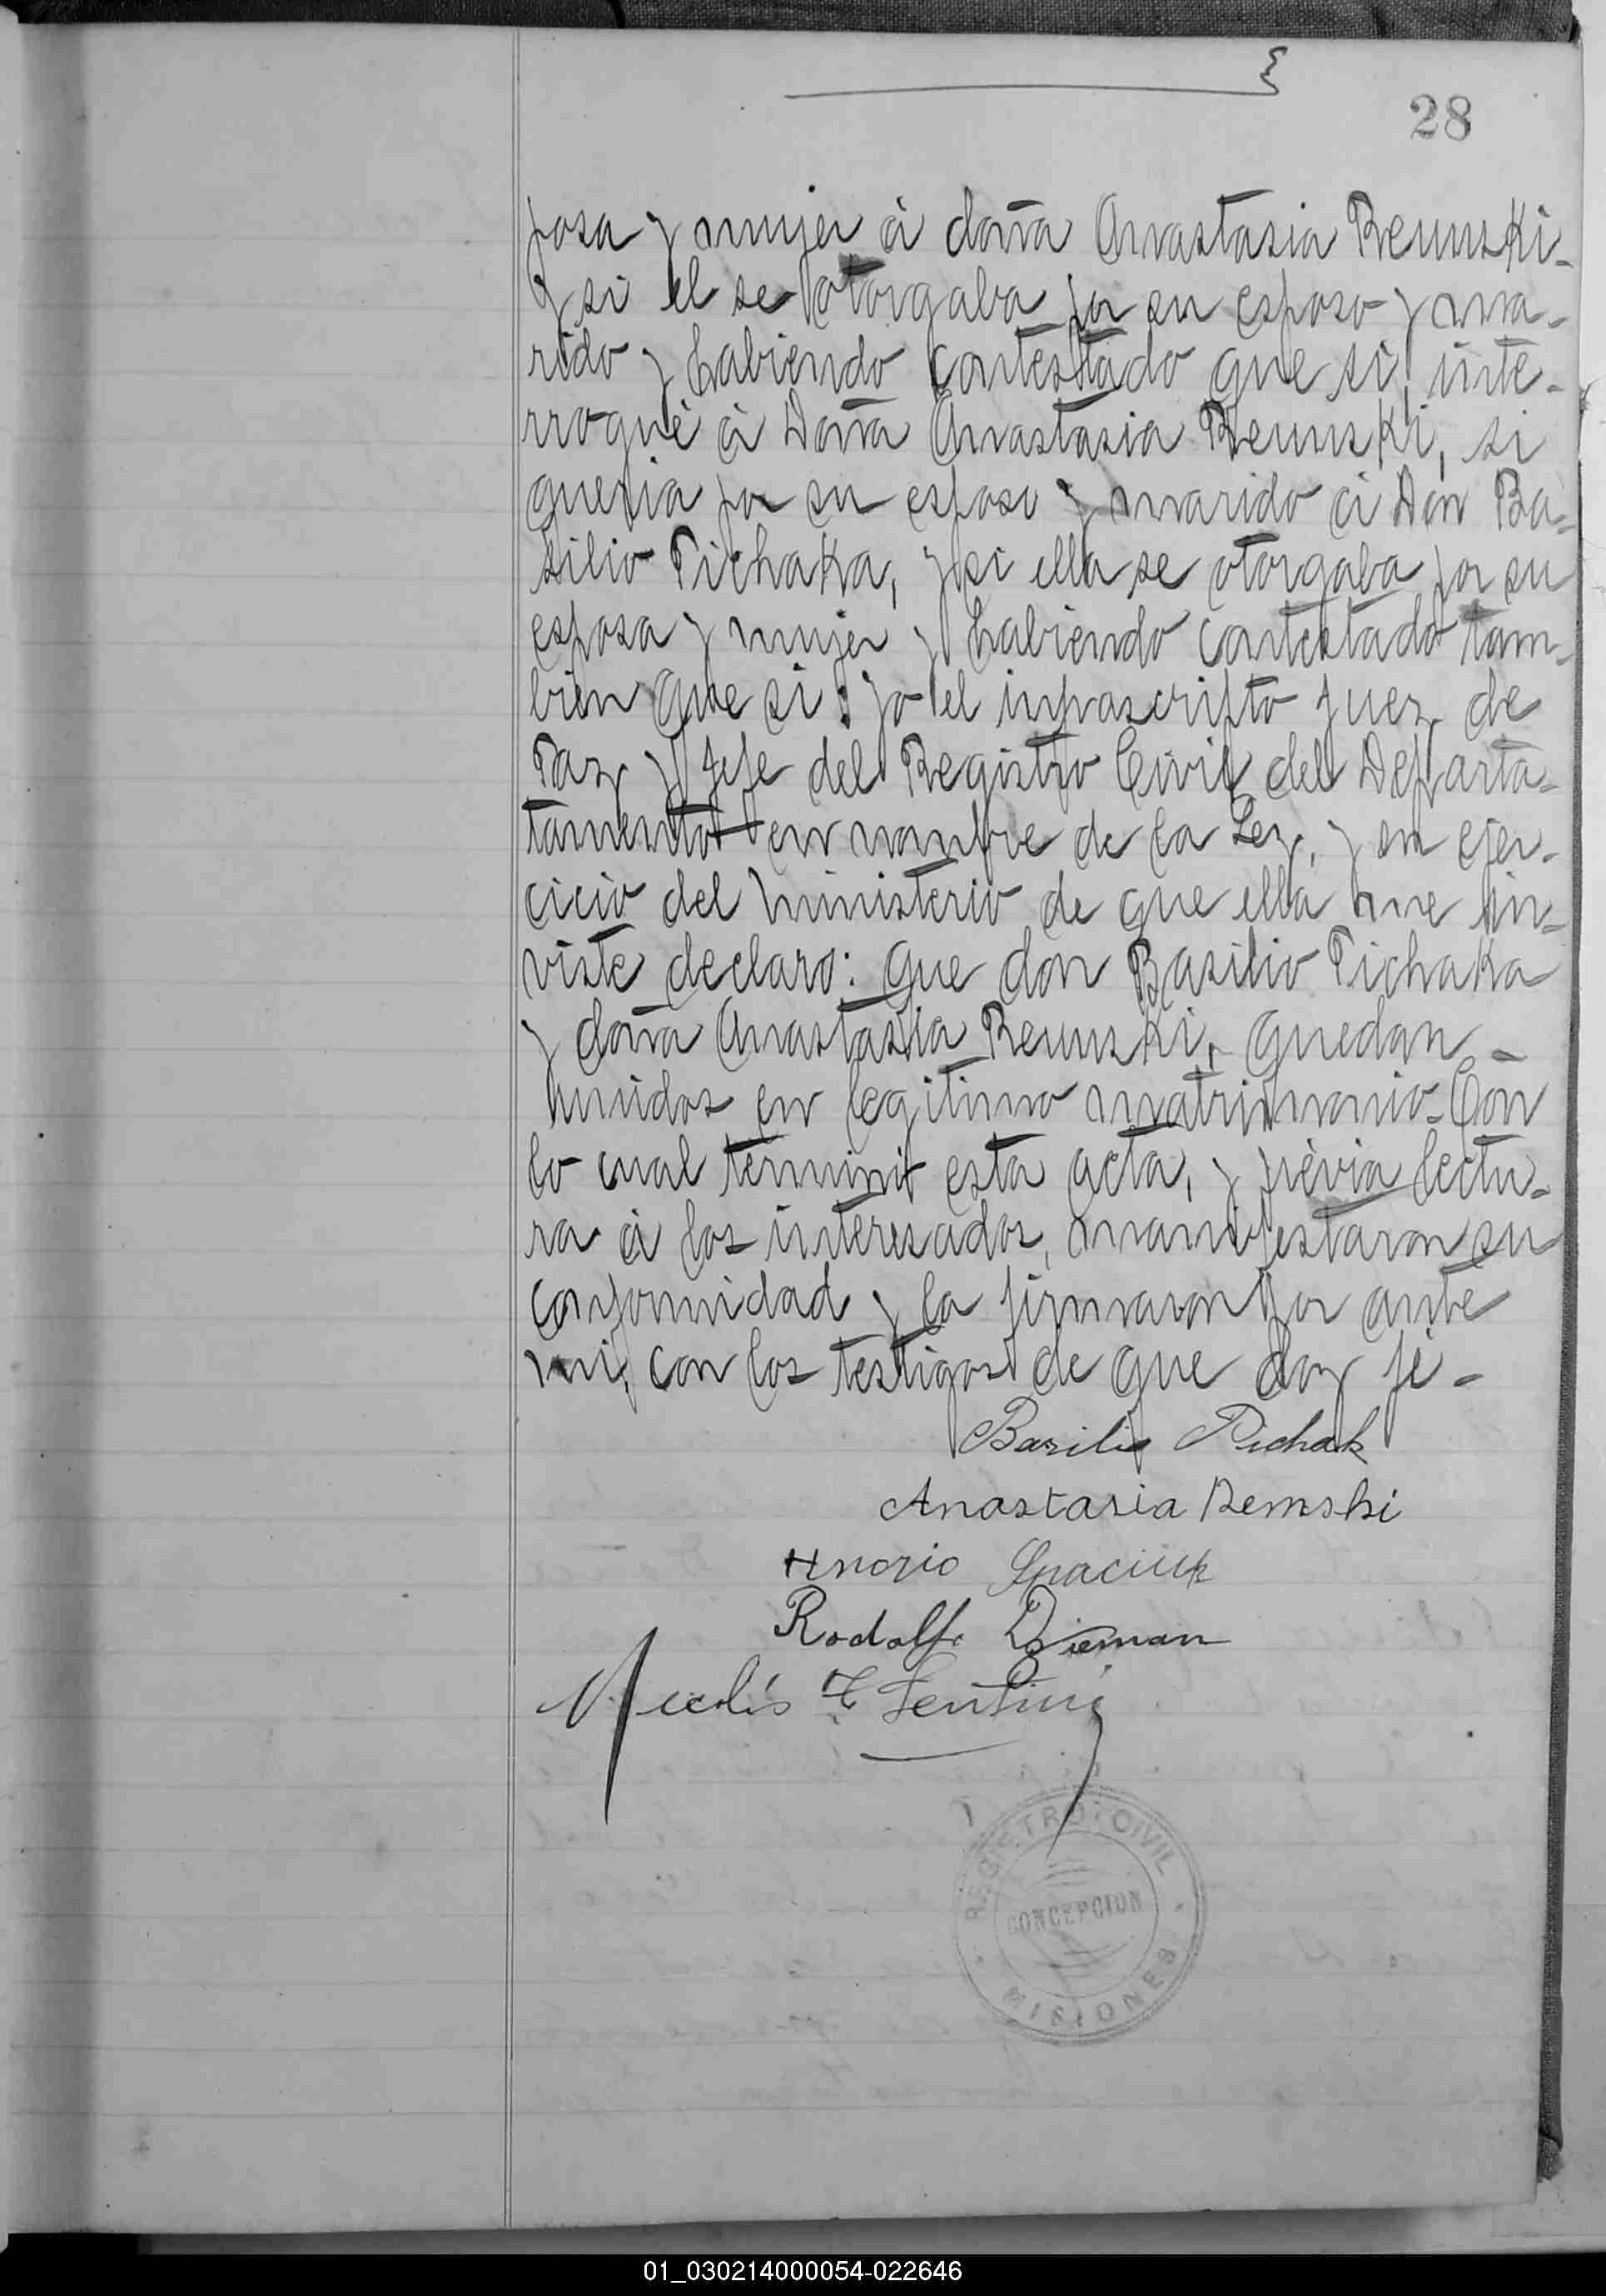 28
posa y mujer á doña Anastasia Remski-
y si el se otorgaba por su esposo y ma-
rido y habiendo contestado que si, inte-
rrogué á Doña Anastasia Remski, si
queria por su esposo y marido á Don Ba-
silio Pichaka, y si ella se otorgaba por su
esposa y mujer y habiendo contestado tam-
bien que si: yo el infrascripto Juez de
Paz y Jefe del Registro Civil del Departa-
tamento en nombre de la Ley, y en ejer-
cicio del ministerio de que ella me in-
viste declaro: que don Basilio Pichaka
y doña Anastasia Remski, quedan -
unidos en legitimo matrimonio- Con
lo cual terminó esta acta, y prévia lectu-
ra á los interesados, manifestaron su
conformidad y la firmaron por ante
mi, con los testigos de que doy fé -
Basilio Pichak
Anastasia Remski
Rodolfo
Nicolás
REGISTRO CIVIL
CONCEPCION
MISIONES
01_030214000054-022646